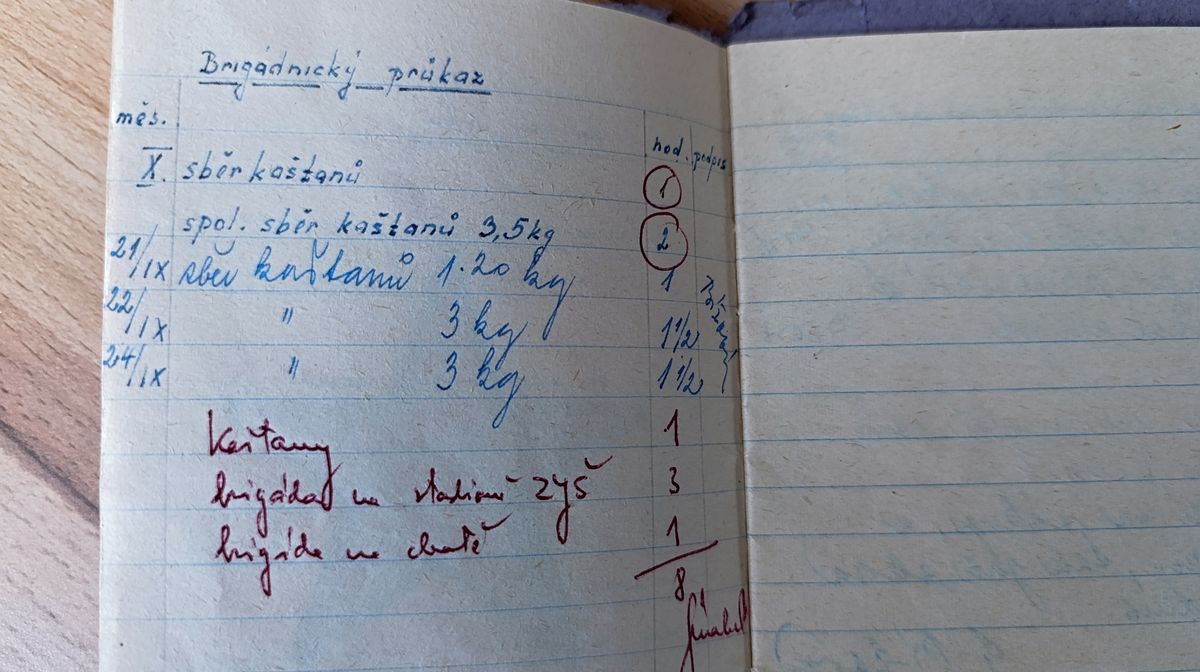 Brigádnický průkaz
měs.
hod. podpis
X. sběr kaštanů 1
spol. sběr kaštanů 3,5kg 2
21/IX sběr kaštanů 1.20 kg 1
22/IX " 3 kg 1 1/2
24/IX " 3 kg 1 1/2
Kaštany 1
brigáda na stadioně ZYŠ 3
brigáda na chatě 1
8